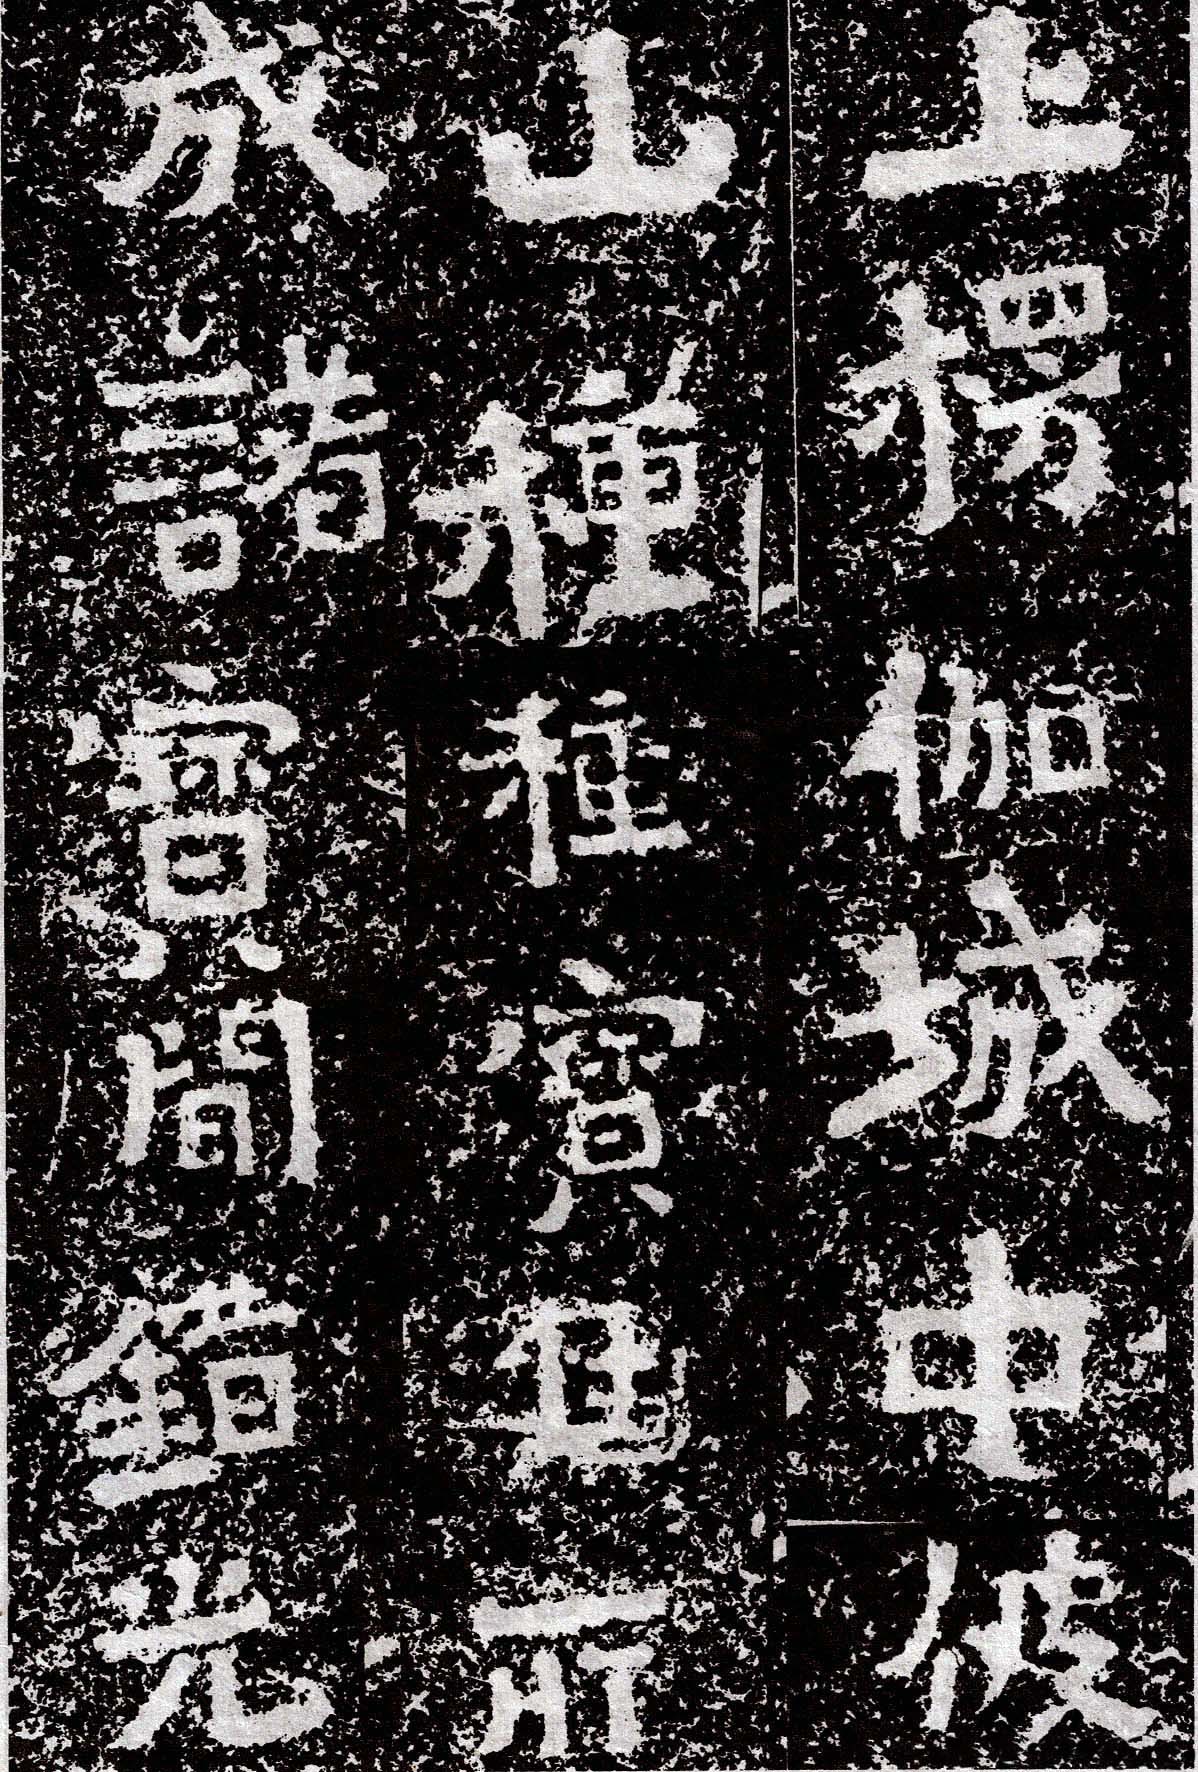 上楞伽城中彼
山種種寶所
成諸寶間錯光